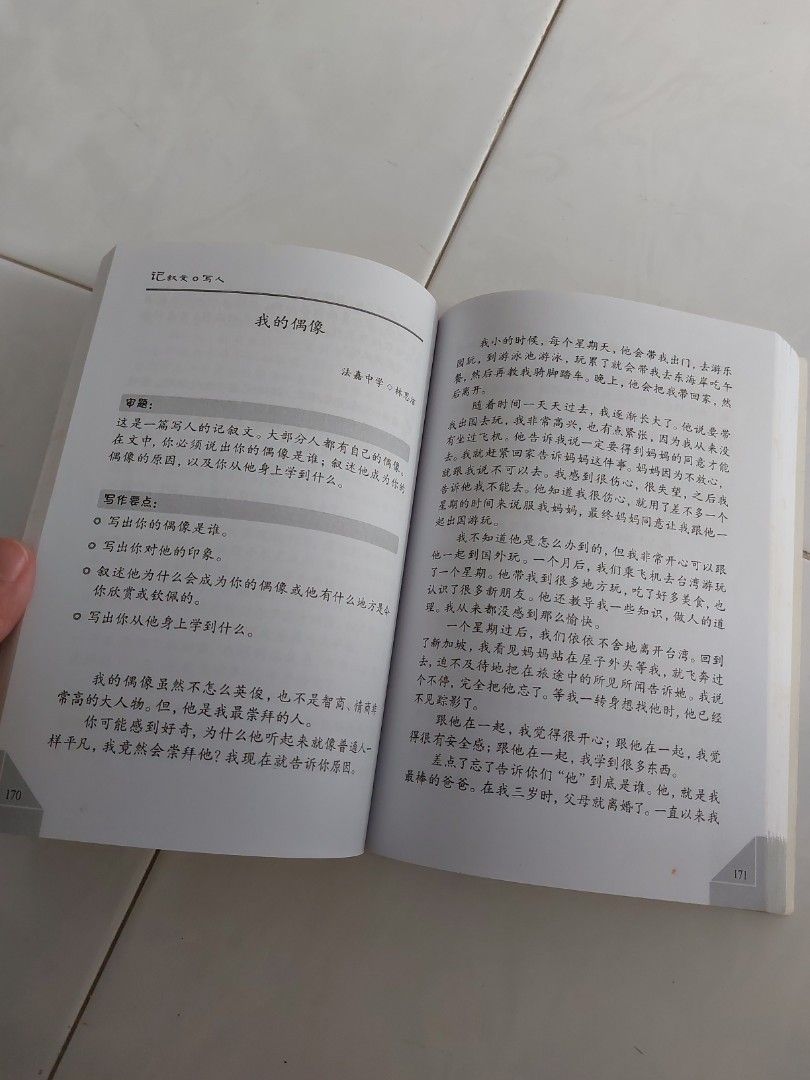 记叙文 写人
我的偶像
法嘉中学 林思
审题：
这是一篇写人的记叙文。大部分人都有自己的偶像。
在文中，你必须说出你的偶像是谁；叙述他成为你的
偶像的原因，以及你从他身上学到什么。
写作要点：
写出你的偶像是谁。
写出你对他的印象。
叙述他为什么会成为你的偶像或他有什么地方是令
你欣赏或钦佩的。
写出你从他身上学到什么。
我的偶像虽然不怎么英俊，也不是智商、情商非
常高的大人物。但，他是我最崇拜的人。
你可能感到好奇，为什么他听起来就像普通人一
样平凡，我竟然会崇拜他？我现在就告诉你原因。
170
我小的时候，每个星期天，他会带我出门，去游乐
园玩，到游泳池游泳，玩累了就会带我去东海岸吃午
餐，然后再教我骑脚踏车。晚上，他会把我带回家，然
后离开。
随着时间一天天过去，我逐渐长大了。他说要带
我出国去玩，我非常高兴，也有点紧张，因为我从来没
有坐过飞机。他告诉我说一定要得到妈妈的同意才能
去。我就赶紧回家告诉妈妈这件事。妈妈因为不放心，
就跟我说不可以去。我感到很伤心，很失望，之后我
告诉他我不能去。他知道我很伤心，就用了差不多一个
星期的时间来说服我妈妈，最终妈妈同意让我跟他一
起出国游玩。
我不知道他是怎么办到的，但我非常开心可以跟
他一起到国外玩。一个月后，我们乘飞机去台湾游玩
了一个星期。他带我到很多地方玩，吃了好多美食，也
认识了很多新朋友。他还教导我一些知识，做人的道
理。我从来都没感到那么愉快。
一个星期过后，我们依依不舍地离开台湾。回到
了新加坡，我看见妈妈站在屋子外头等我，就飞奔过
去，迫不及待地把在旅途中的所见所闻告诉她。我说
个不停，完全把他忘了。等我一转身想找他时，他已经
不见踪影了。
跟他在一起，我觉得很开心；跟他在一起，我觉
得很有安全感；跟他在一起，我学到很多东西。
差点了忘了告诉你们“他”到底是谁。他，就是我
最棒的爸爸。在我三岁时，父母就离婚了。一直以来我
171